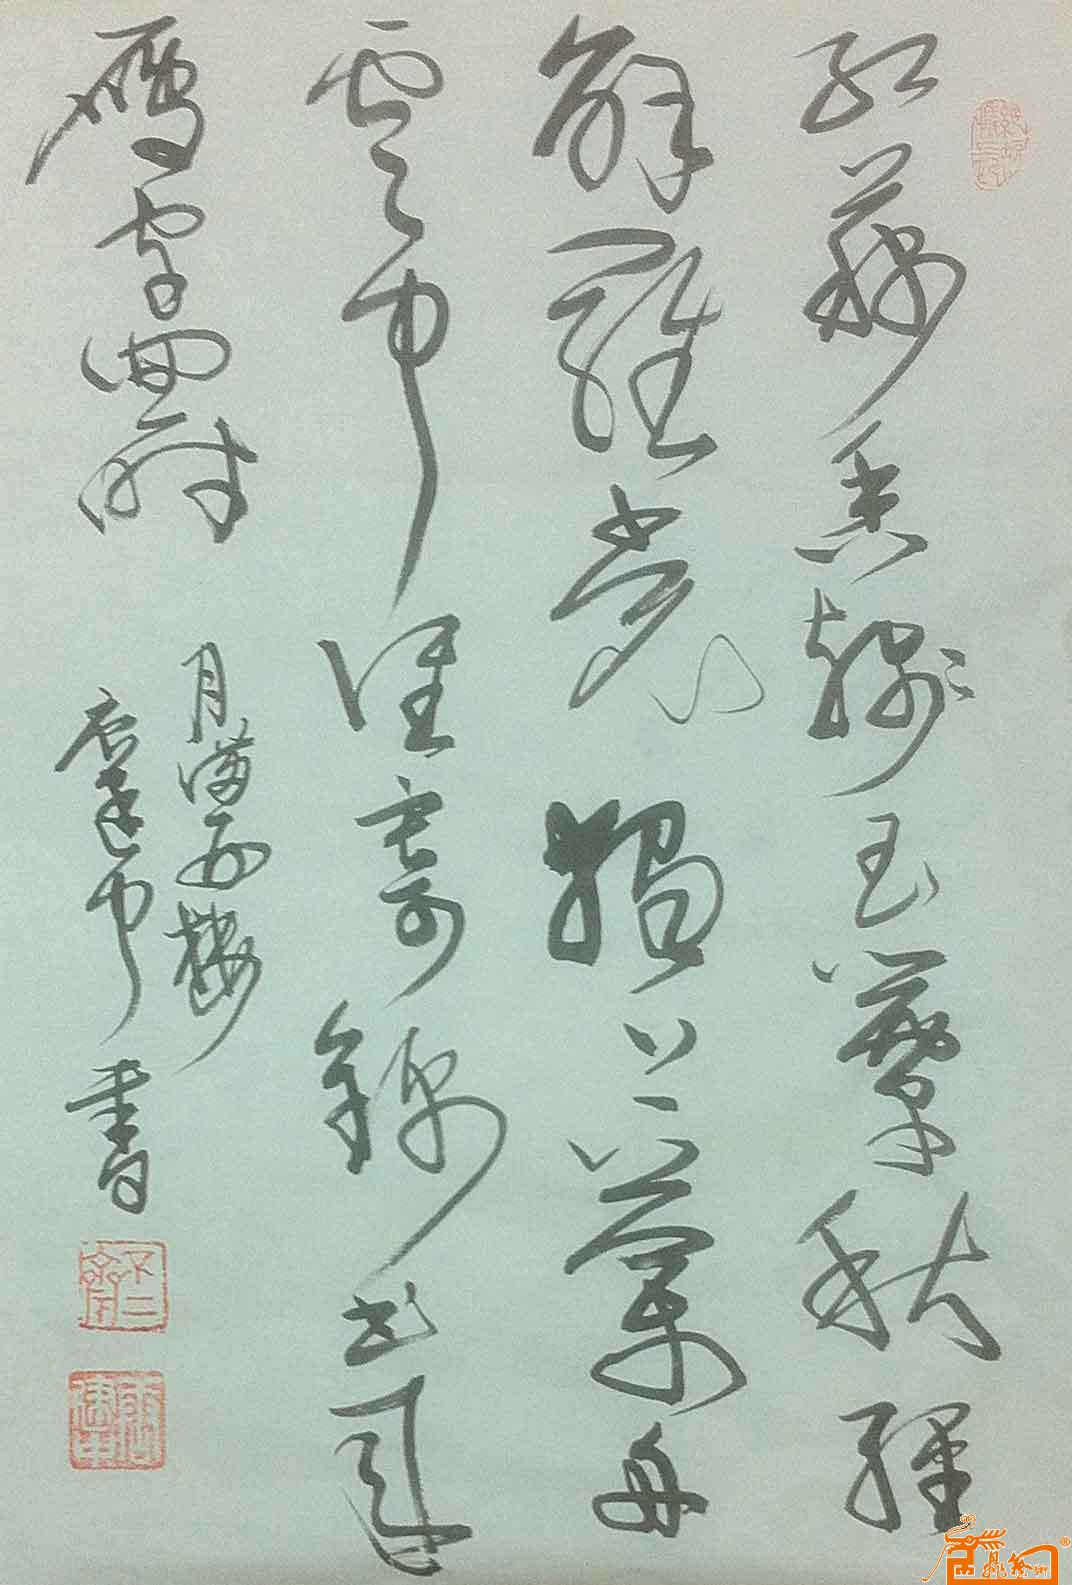 红藕香残玉簟秋轻
解罗裳独上兰舟
云中谁寄锦书来
雁字回时
月满西楼
唐建中书